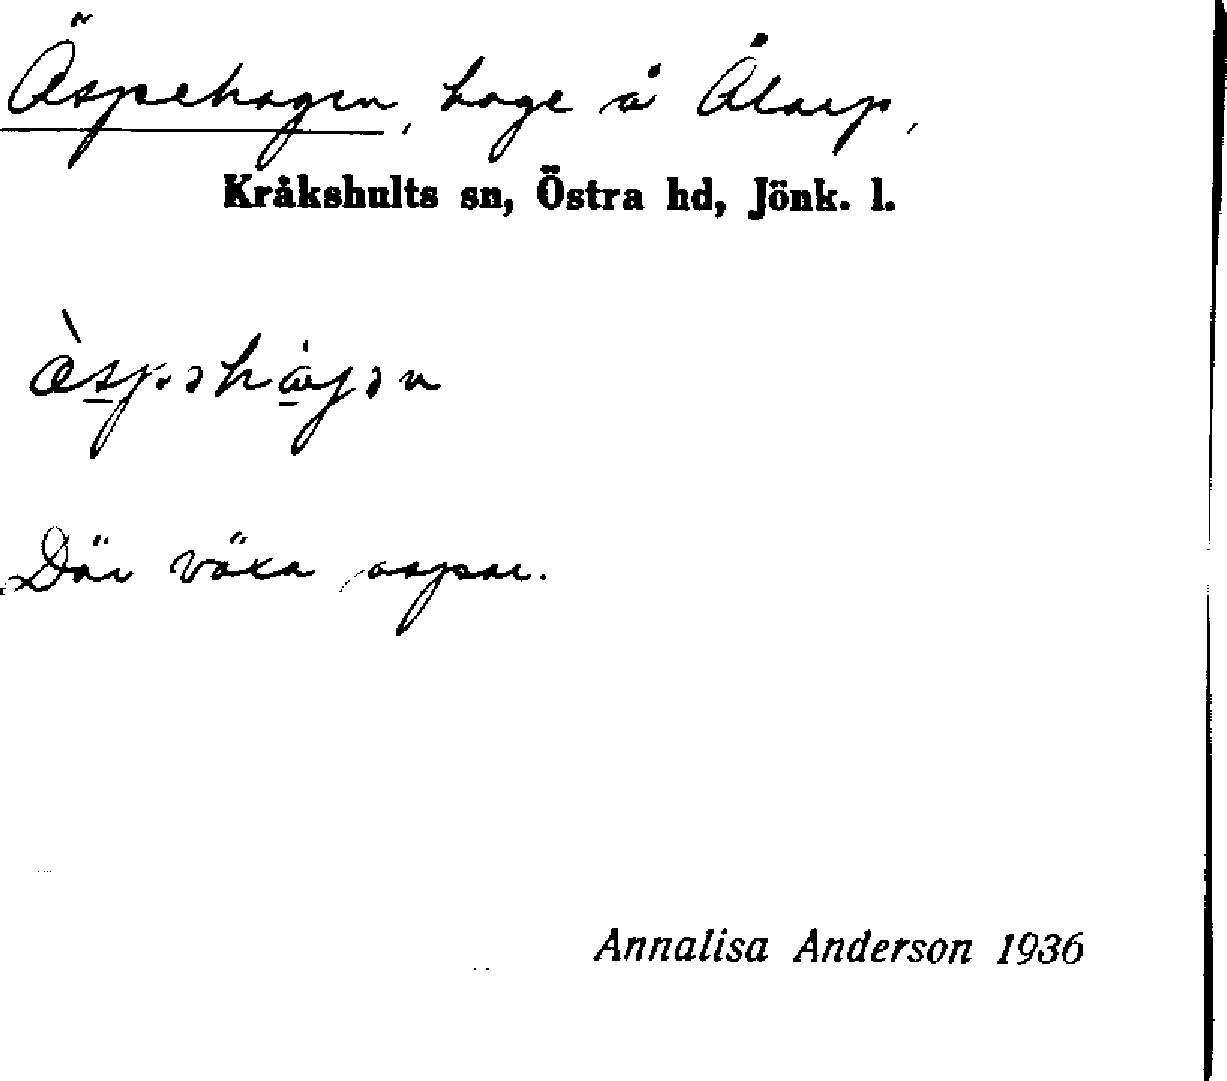 Äspehagen, hage å Ålarp,
Kråkshults sn, Östra hd, Jönk. l.
Där växa aspar.
Annalisa Anderson 1936